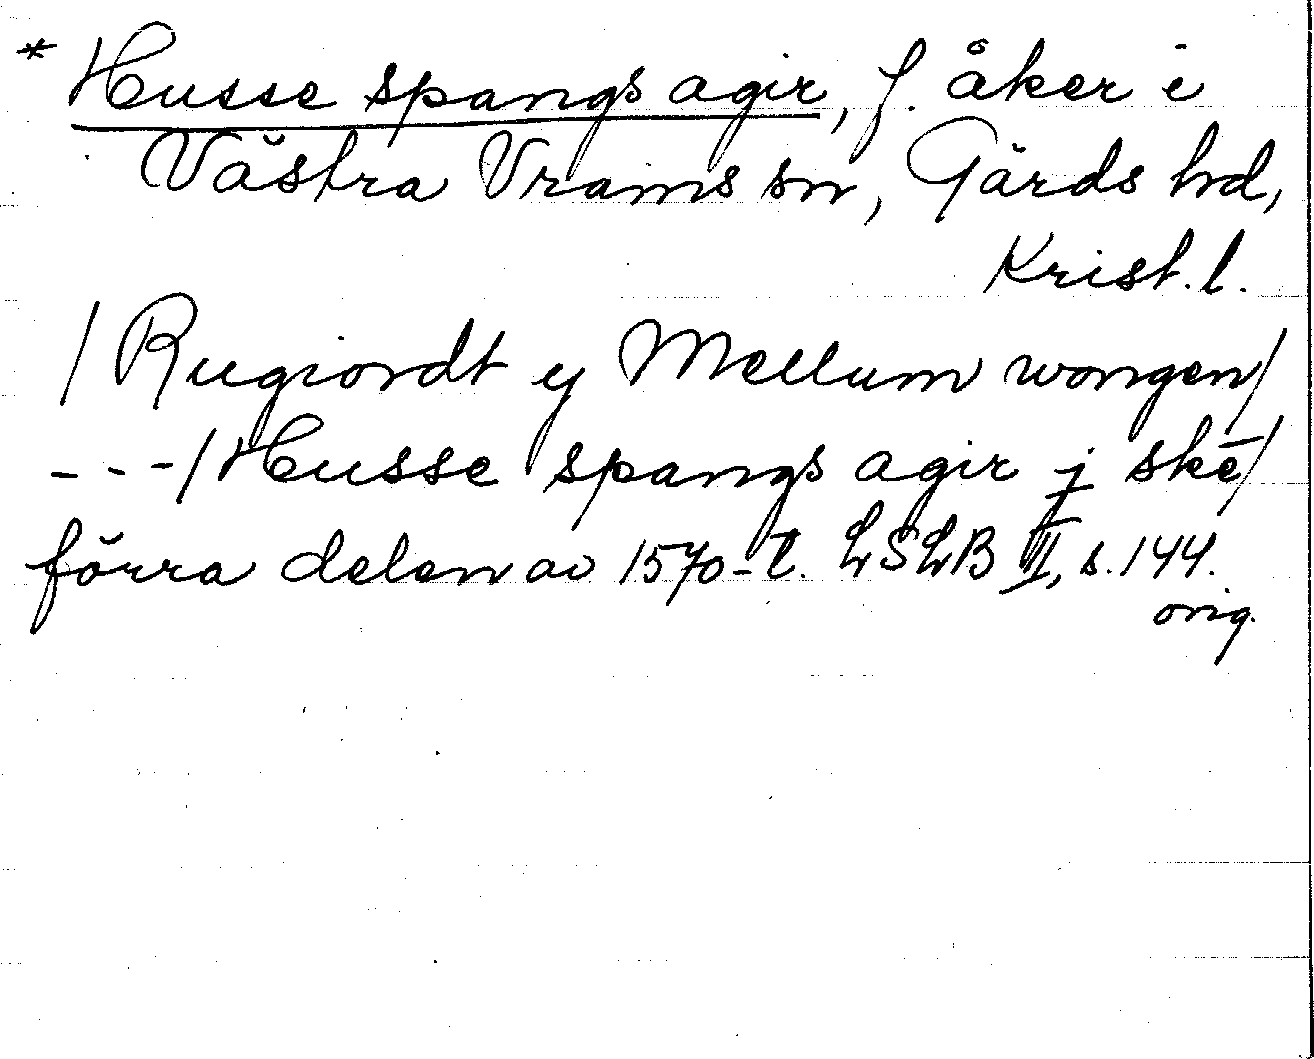 * Husse spangs agir, f. åker i
Västra Vrams sn, Gärds hd,
Krist. l.
/ Rugiordt y Mellum wongen/
---/ Husse spangs agir j skē/
förra delen av 1570-t. LSLB III, s. 144.
orig.